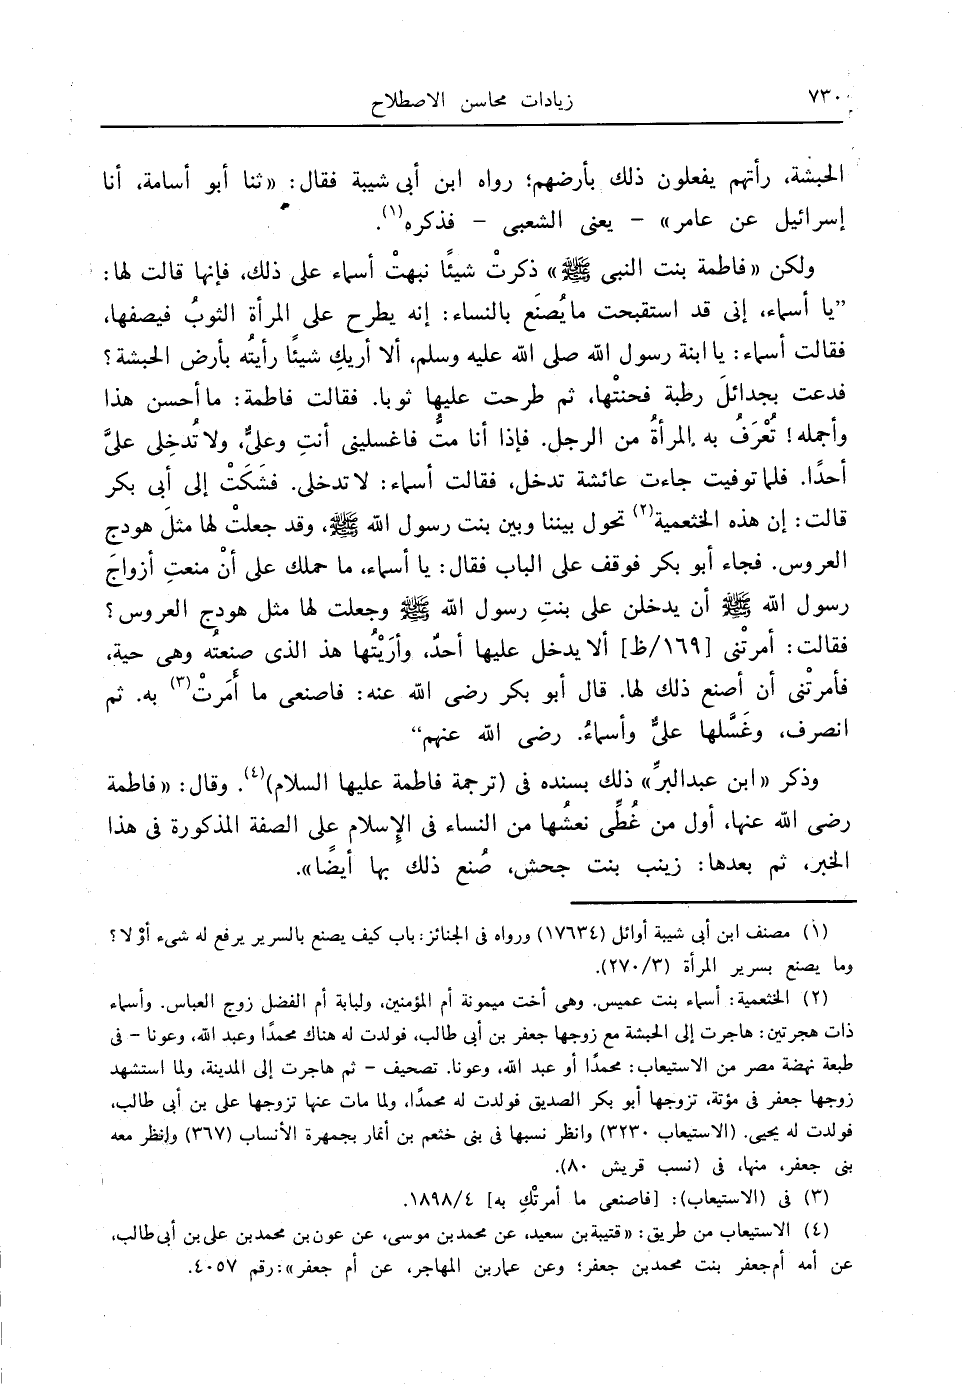 ٧٣٠
زيادات محاسن الاصطلاح
الحبشة، رأتهم يفعلون ذلك بأرضهم؛ رواه ابن أبى شيبة فقال: «ثنا أبو أسامة، أنا
إسرائيل عن عامر» - يعنى الشعبى - فذكره(١).
ولكن «فاطمة بنت النبى ﷺ» ذكرتْ شيئًا نبهتْ أسماء على ذلك، فإنها قالت لها:
”يا أسماء، إنى قد استقبحت ما يُصنَع بالنساء: إنه يطرح على المرأة الثوبُ فيصفها،
فقالت أسماء: يا ابنة رسول الله صلى الله عليه وسلم، ألا أريكِ شيئًا رأيتُه بأرض الحبشة؟
فدعت بجدائلَ رطبة فحنتْها، ثم طرحت عليها ثوبا. فقالت فاطمة: ما أحسن هذا
وأجمله! تُعْرَفُ به المرأةُ من الرجل. فإذا أنا متُّ فاغسلينى أنتِ وعلىٌّ، ولا تُدخِلى علىَّ
أحدًا. فلما توفيت جاءت عائشة تدخل، فقالت أسماء: لا تدخلى. فشَكَتْ إلى أبى بكر
قالت: إن هذه الخثعمية(٢) تحول بيننا وبين بنت رسول الله ﷺ، وقد جعلتْ لها مثلَ هودج
العروس. فجاء أبو بكر فوقف على الباب فقال: يا أسماء، ما حملك على أنْ منعتِ أزواجَ
رسول الله ﷺ أن يدخلن على بنتِ رسول الله ﷺ وجعلت لها مثل هودج العروس؟
فقالت: أمرتْنى [١٦٩/ظ] ألا يدخل عليها أحدٌ، وأرَيْتُها هذ الذى صنعتُه وهى حية،
فأمرتْنى أن أصنع ذلك لها. قال أبو بكر رضى الله عنه: فاصنعى ما أَمَرتْ(٣) به. ثم
انصرف، وغَسَّلها علىٌّ وأسماءُ. رضى الله عنهم“
وذكر «ابن عبدالبرِّ» ذلك بسنده فى (ترجمة فاطمة عليها السلام)(٤). وقال: «فاطمة
رضى الله عنها، أول من غُطِّى نعشُها من النساء فى الإسلام على الصفة المذكورة فى هذا
الخبر، ثم بعدها: زينب بنت جحش، صُنع ذلك بها أيضًا».
(١) مصنف ابن أبى شيبة أوائل (١٧٦٣٤) ورواه فى الجنائز: باب كيف يصنع بالسرير يرفع له شىء أوْ لا؟
وما يصنع بسرير المرأة (٢٧٠/٣).
(٢) الخثعمية: أسماء بنت عميس. وهى أخت ميمونة أم المؤمنين، ولبابة أم الفضل زوج العباس. وأسماء
ذات هجرتين: هاجرت إلى الحبشة مع زوجها جعفر بن أبى طالب، فولدت له هناك محمدًا وعبد الله، وعونا - فى
طبعة نهضة مصر من الاستيعاب: محمدًا أو عبد الله، وعونا. تصحيف - ثم هاجرت إلى المدينة، ولما استشهد
زوجها جعفر فى مؤتة، تزوجها أبو بكر الصديق فولدت له محمدًا، ولما مات عنها تزوجها على بن أبى طالب،
فولدت له يحيى. (الاستيعاب ٣٢٣٠) وانظر نسبها فى بنى خثعم بن أنمار بجمهرة الأنساب (٣٦٧) وانظر معه
بنى جعفر، منها، فى (نسب قريش ٨٠).
(٣) فى (الاستيعاب): [فاصنعى ما أمرتْكِ به] ١٨٩٨/٤.
(٤) الاستيعاب من طريق: «قتيبة بن سعيد، عن محمد بن موسى، عن عون بن محمد بن على بن أبى طالب،
عن أمه أم جعفر بنت محمد بن جعفر؛ وعن عمار بن المهاجر، عن أم جعفر»: رقم ٤٠٥٧.